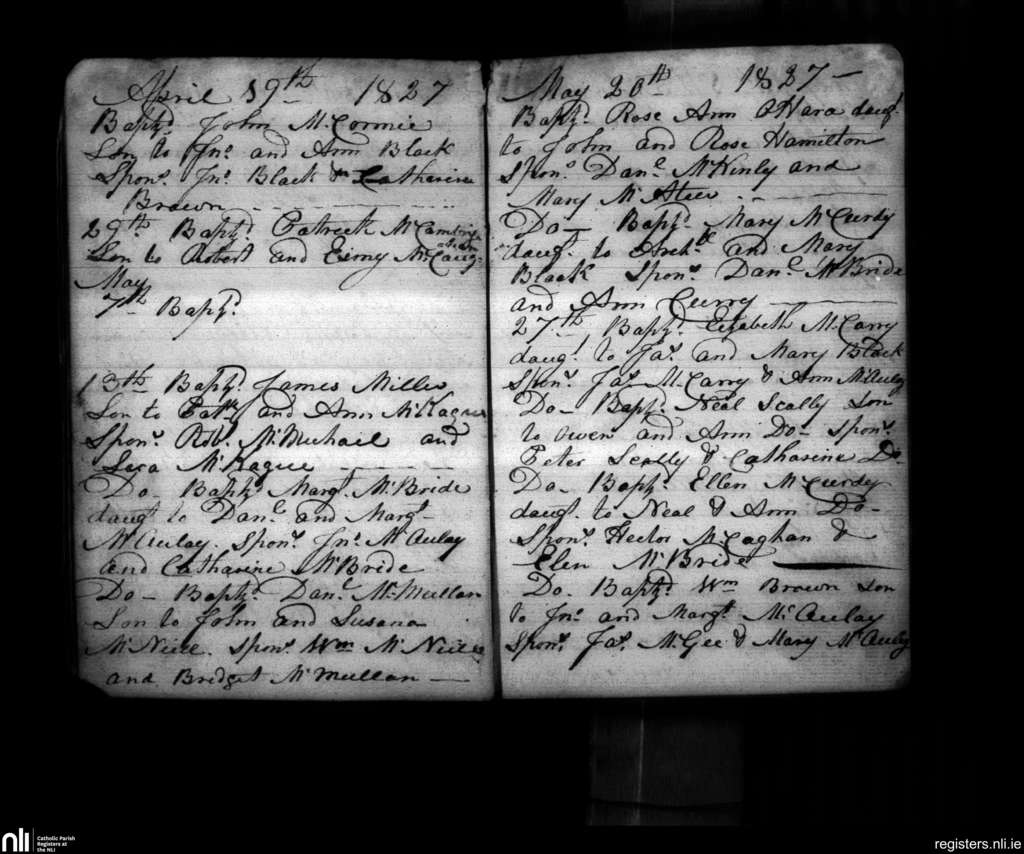 April 19th 1827
Bapt.d John McCormic
Son to Jno. and Ann Black
Spon.s Jno. Black & Catharine
Brown
29th Bapt.d Patrick McCambridge
Son to Robert and
May
7th Bapt.d
13th Bapt.d James Miller
Son to Patk. and Ann McKague
Spon.s Robt. McMichael and
Sera McKague
Do Bapt.d Margt. McBride
daugt. to Danl. and Margt.
McAulay. Spon.s Jno. McAulay
and Catharine McBride
Do Bapt.d Danl. McMullan
Son to John and Susana
McNiell. Spon.s Wm McNiell
and Bridget McMullan
May 20th 1827
Bapt.d Rose Ann O'Hara daugt.
to John and Rose Hamilton
Spon.s Danl. McKinly and
Mary
Do Bapt.d Mary McCurdy
daugt. to Archd. and Mary
Black Spon.s Danl. McBride
and Ann Curry
27th Bapt.d Elizabeth McCarry
daugt. to Jas. and Mary Black
Spon.s Jas. McCarry & Ann McAulay
Do Bapt.d Neal Scally Son
to Owen and Ann Do Spon.s
Peter Scally & Catharine Do
Do Bapt.d Ellen McCurdy
daugt. to Neal & Ann Do
Spon.s Hector McCaghan &
Elen McBride
Do Bapt.d Wm Brown Son
to Jno. and Margt. McAulay
Spon.s Jas. McGee & Mary McAulay
nli
Catholic Parish
Registers at
the NLI
registers.nli.ie